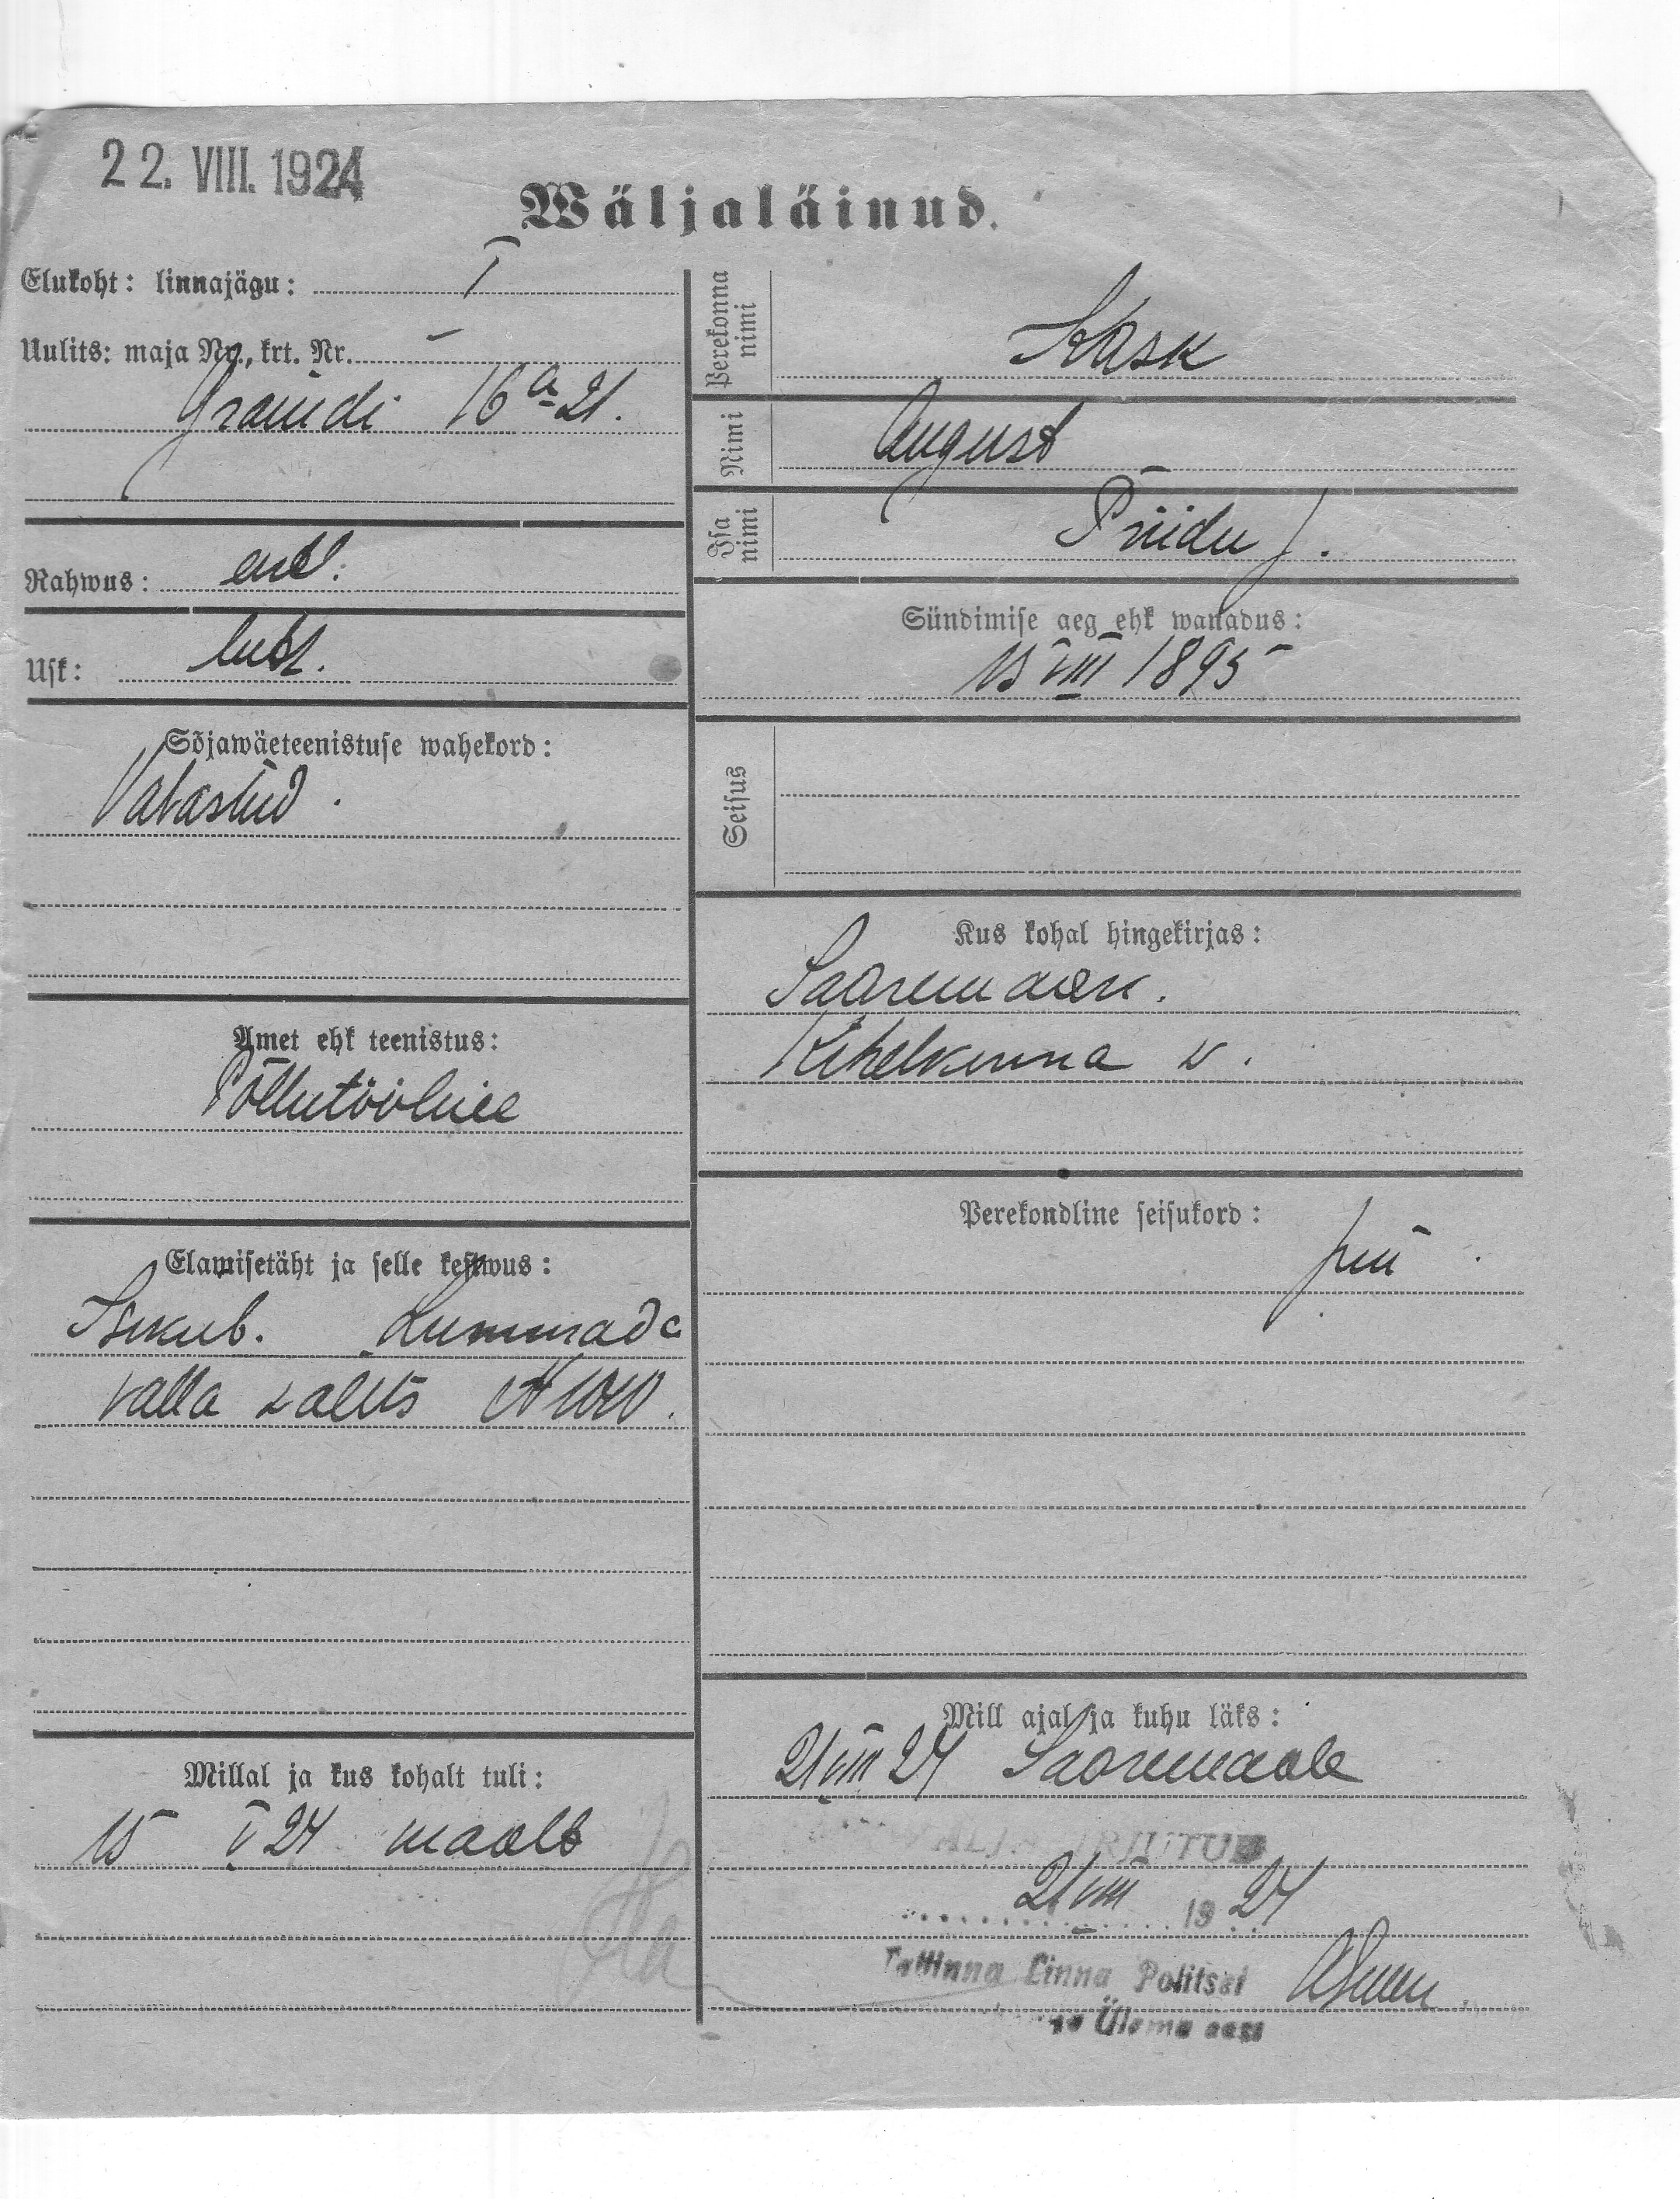 22. VIII. 1924
Wäljaläinud.
Elukoht: linnajägu: I
Uulits: maja Nr., krt. Nr.
Graniidi 16a-21.
Rahwus: eest.
Usk: lutt.
Sõjawäeteenistuse wahekord:
Vabastud.
Amet ehk teenistus:
Põllutööline
Elamisetäht ja selle kestwus:
Isikub. Lümmada
valla valits N 1010.
Millal ja kus kohalt tuli:
15 V 24 maalt
Perekonna nimi
Kask
Nimi
August
Isa nimi
Priidu p.
Sündimise aeg ehk wanadus:
15 VIII 1895
Seisus
Kus kohal hingekirjas:
Saaremaa
Kihelkonna v.
Perekondline seisukord:
Mill ajal ja kuhu läks:
21 VIII 24 Saaremaale
WÄLJAKIRJUTUD
21 VIII 1924
Tallinna Linna Politsei
Ülema eest